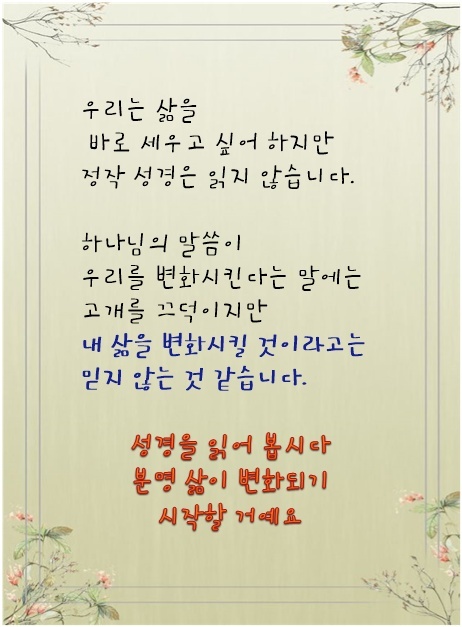 우리는 삶을
바로 세우고 싶어 하지만
정작 성경은 읽지 않습니다.
하나님의 말씀이
우리를 변화시킨다는 말에는
고개를 끄덕이지만
내 삶을 변화시킬 것이라고는
믿지 않는 것 같습니다.
성경을 읽어 봅시다
분명 삶이 변화되기
시작할 거예요